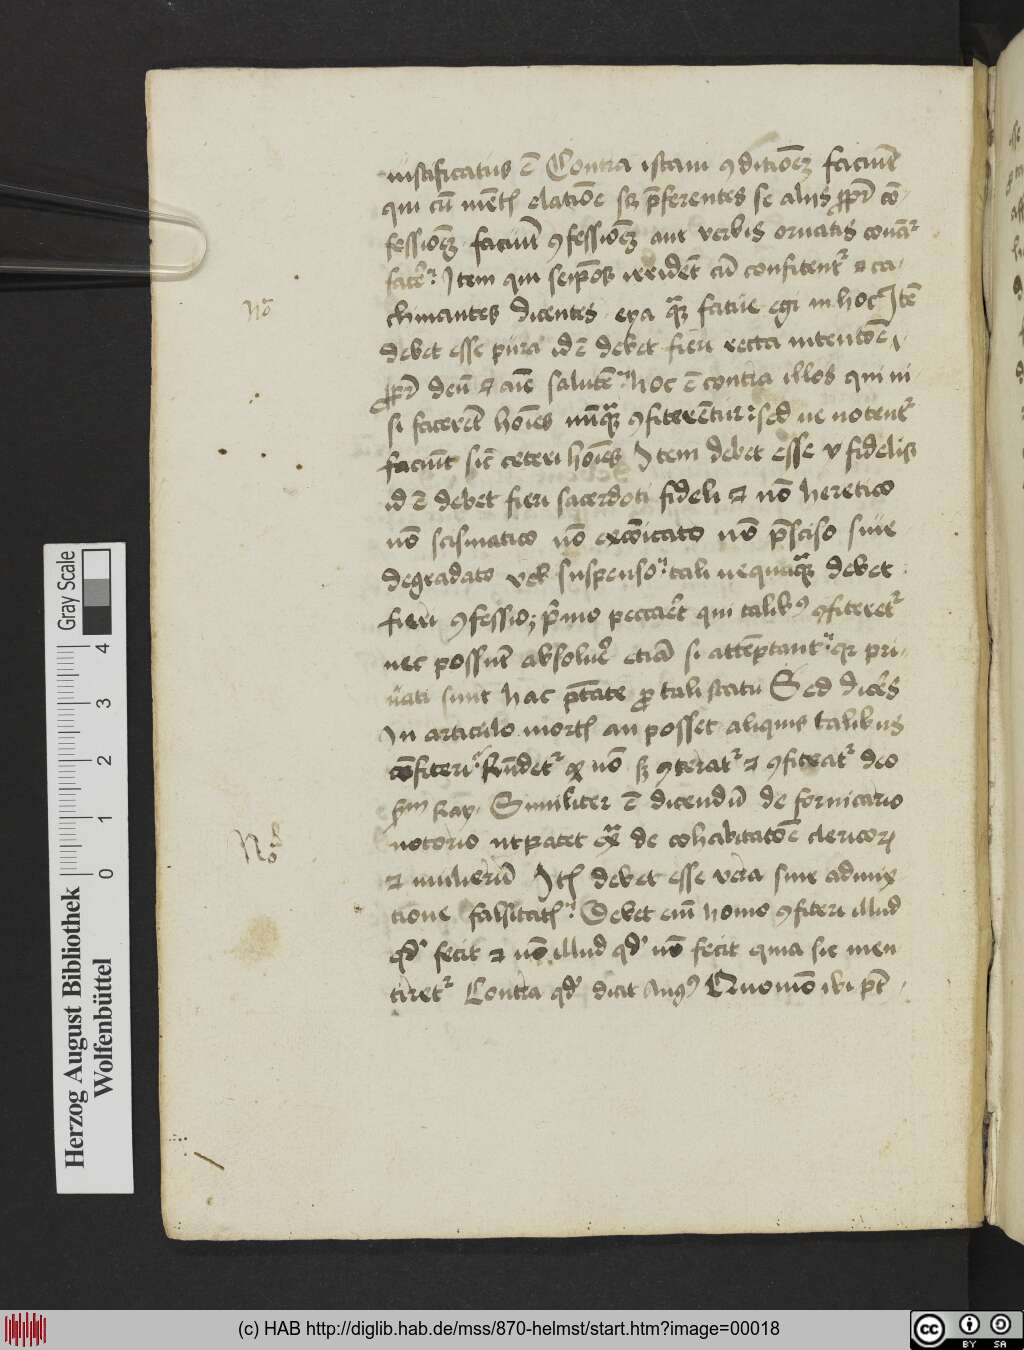 iustificatus ē Contra istam ꝯditioēꝫ faciūt
qui cū mētꝭ elatiōe sꝫ p̄ferentes se aliis ꝓpt᷑ cō-
fessionē faciūt ꝯfessionēꝫ aut verbis ornatis conāt᷑
facēr Item qui seip̄os irridēt cū confitent᷑ ⁊ ca-
chinantes dicentes eya qͣꝫ fatue egi in hoc Itē
debet esse pura id ē debet fieri recta intentōe
ꝓpt᷑ deū ⁊ aīe salutē hoc ē contra illos qui ni
si facerēt hoīes nūqͣꝫ ꝯfiterēntur sed ne notent᷑
faciūt sic̄ ceteri hoīes Item debet esse v fidelis
id ē debet fieri sacerdoti fideli ⁊ nō heretico
nō scismatico nō excōicato nō p̄sciso siue
degradato vel suspenso tali nequaqͣꝫ debet
fieri ꝯfessio p̄mo peccaēt qui talibꝰ ꝯfiteret᷑
nec possūt absoluē᷑ etiā si attēptant᷑ qꝛ pri-
uati sunt hac p̄tate ꝓ tali statu Sed diceˢ
In articulo mortꝭ an posset aliquis talibus
cōfiteri Rn̄det᷑ ꝙ nō sꝫ ꝯterat᷑ ⁊ ꝯfiteat᷑ deo
Similiter ē dicendū de fornicario
notorio ut patet exͣ de cohabitatōe clericoꝝ
⁊ mulierū Itꝭ debet esse vera sine admix
tione falsitatꝭ Debet eiū homo ꝯfiteri illud
qd᷑ fecit ⁊ nō illud qd᷑ nō fecit quia sic men
tiret᷑ Contra qd᷑ dicit Augꝰ Quomō ibi pt̄
Nō
Nō
Gray Scale
0 1 2 3 4
Herzog August Bibliothek
Wolfenbüttel
(c) HAB http://diglib.hab.de/mss/870-helmst/start.htm?image=00018
cc BY SA